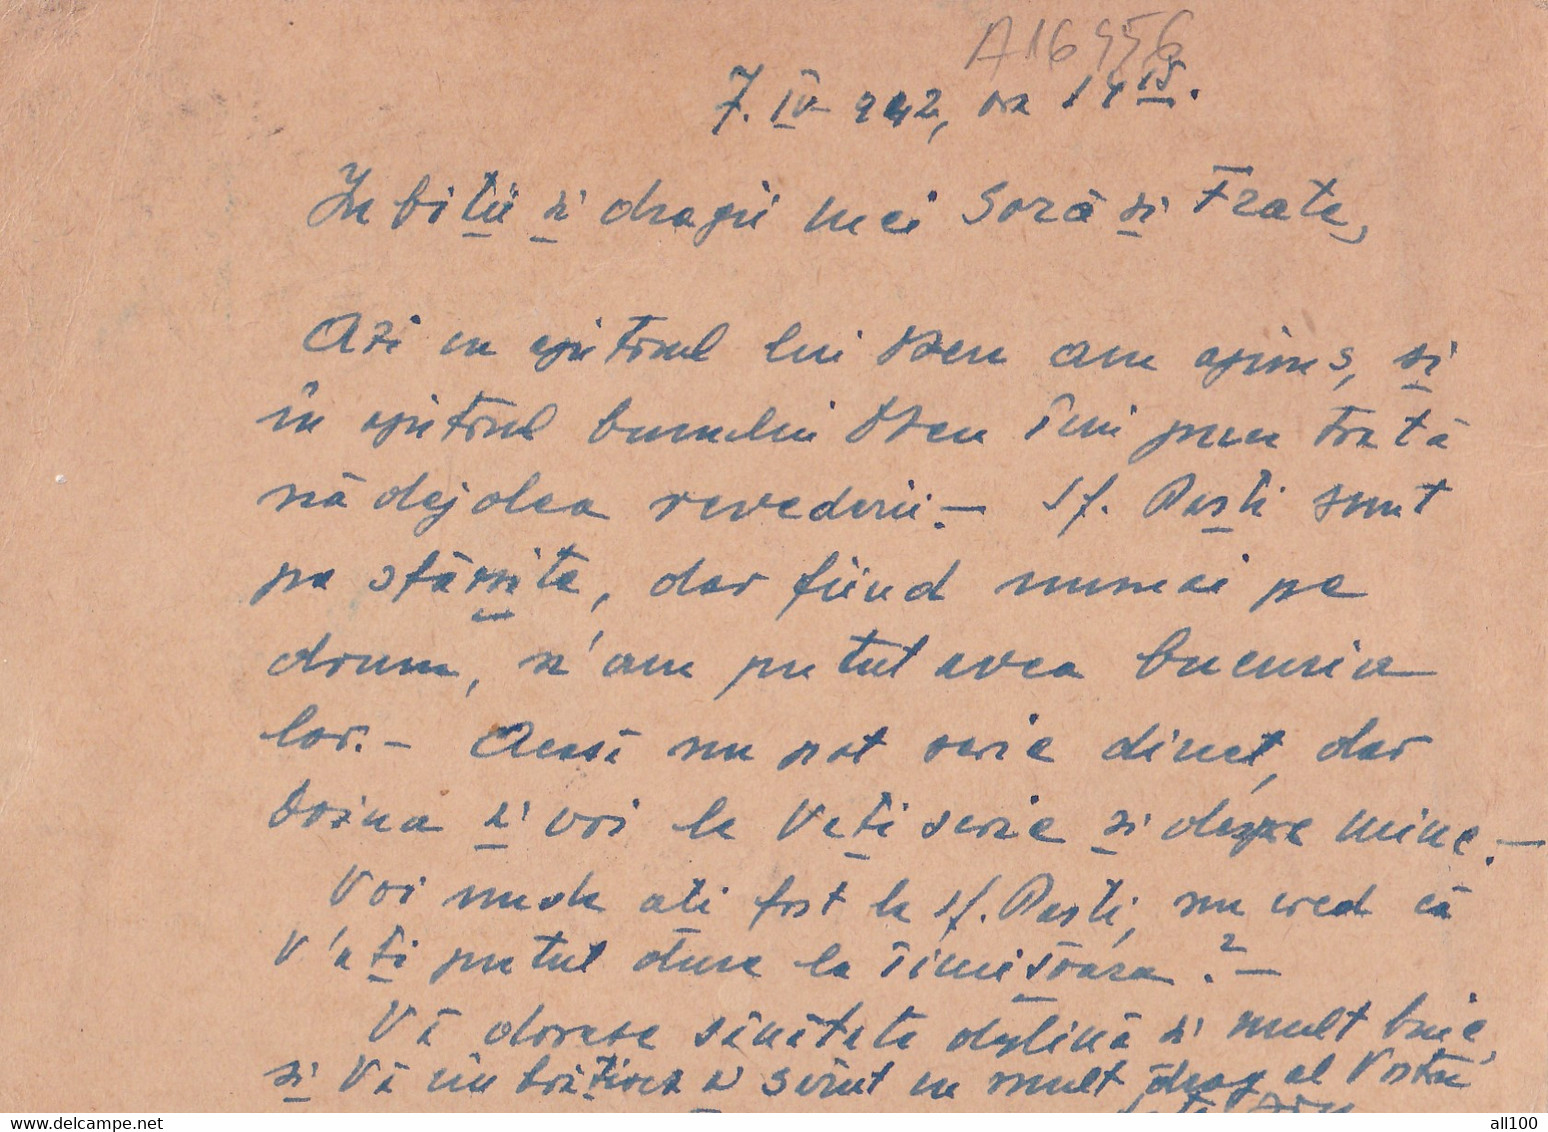 A16456
7. IV 942, ora 14 15.
Iubiții și dragii mei Soră și Frate,
Azi cu ajutorul lui Dzeu am ajuns, și
în ajutorul bunului Dzeu îmi pun toată
nădejdea revederii. – Sf. Paști sunt
pe sfârșite, dar fiind numai pe
drum, n'am putut avea bucuria
lor. – Acasă nu pot scrie direct, dar
Doina și voi le veți scrie și despre mine. –
Voi unde ați fost la Sf. Paști, nu cred că
V'ați putut duce la Timișoara? –
Vă doresc sănătate deplină și mult bine,
și Vă îmbrățișez și sărut cu mult drag al Vostru
all100